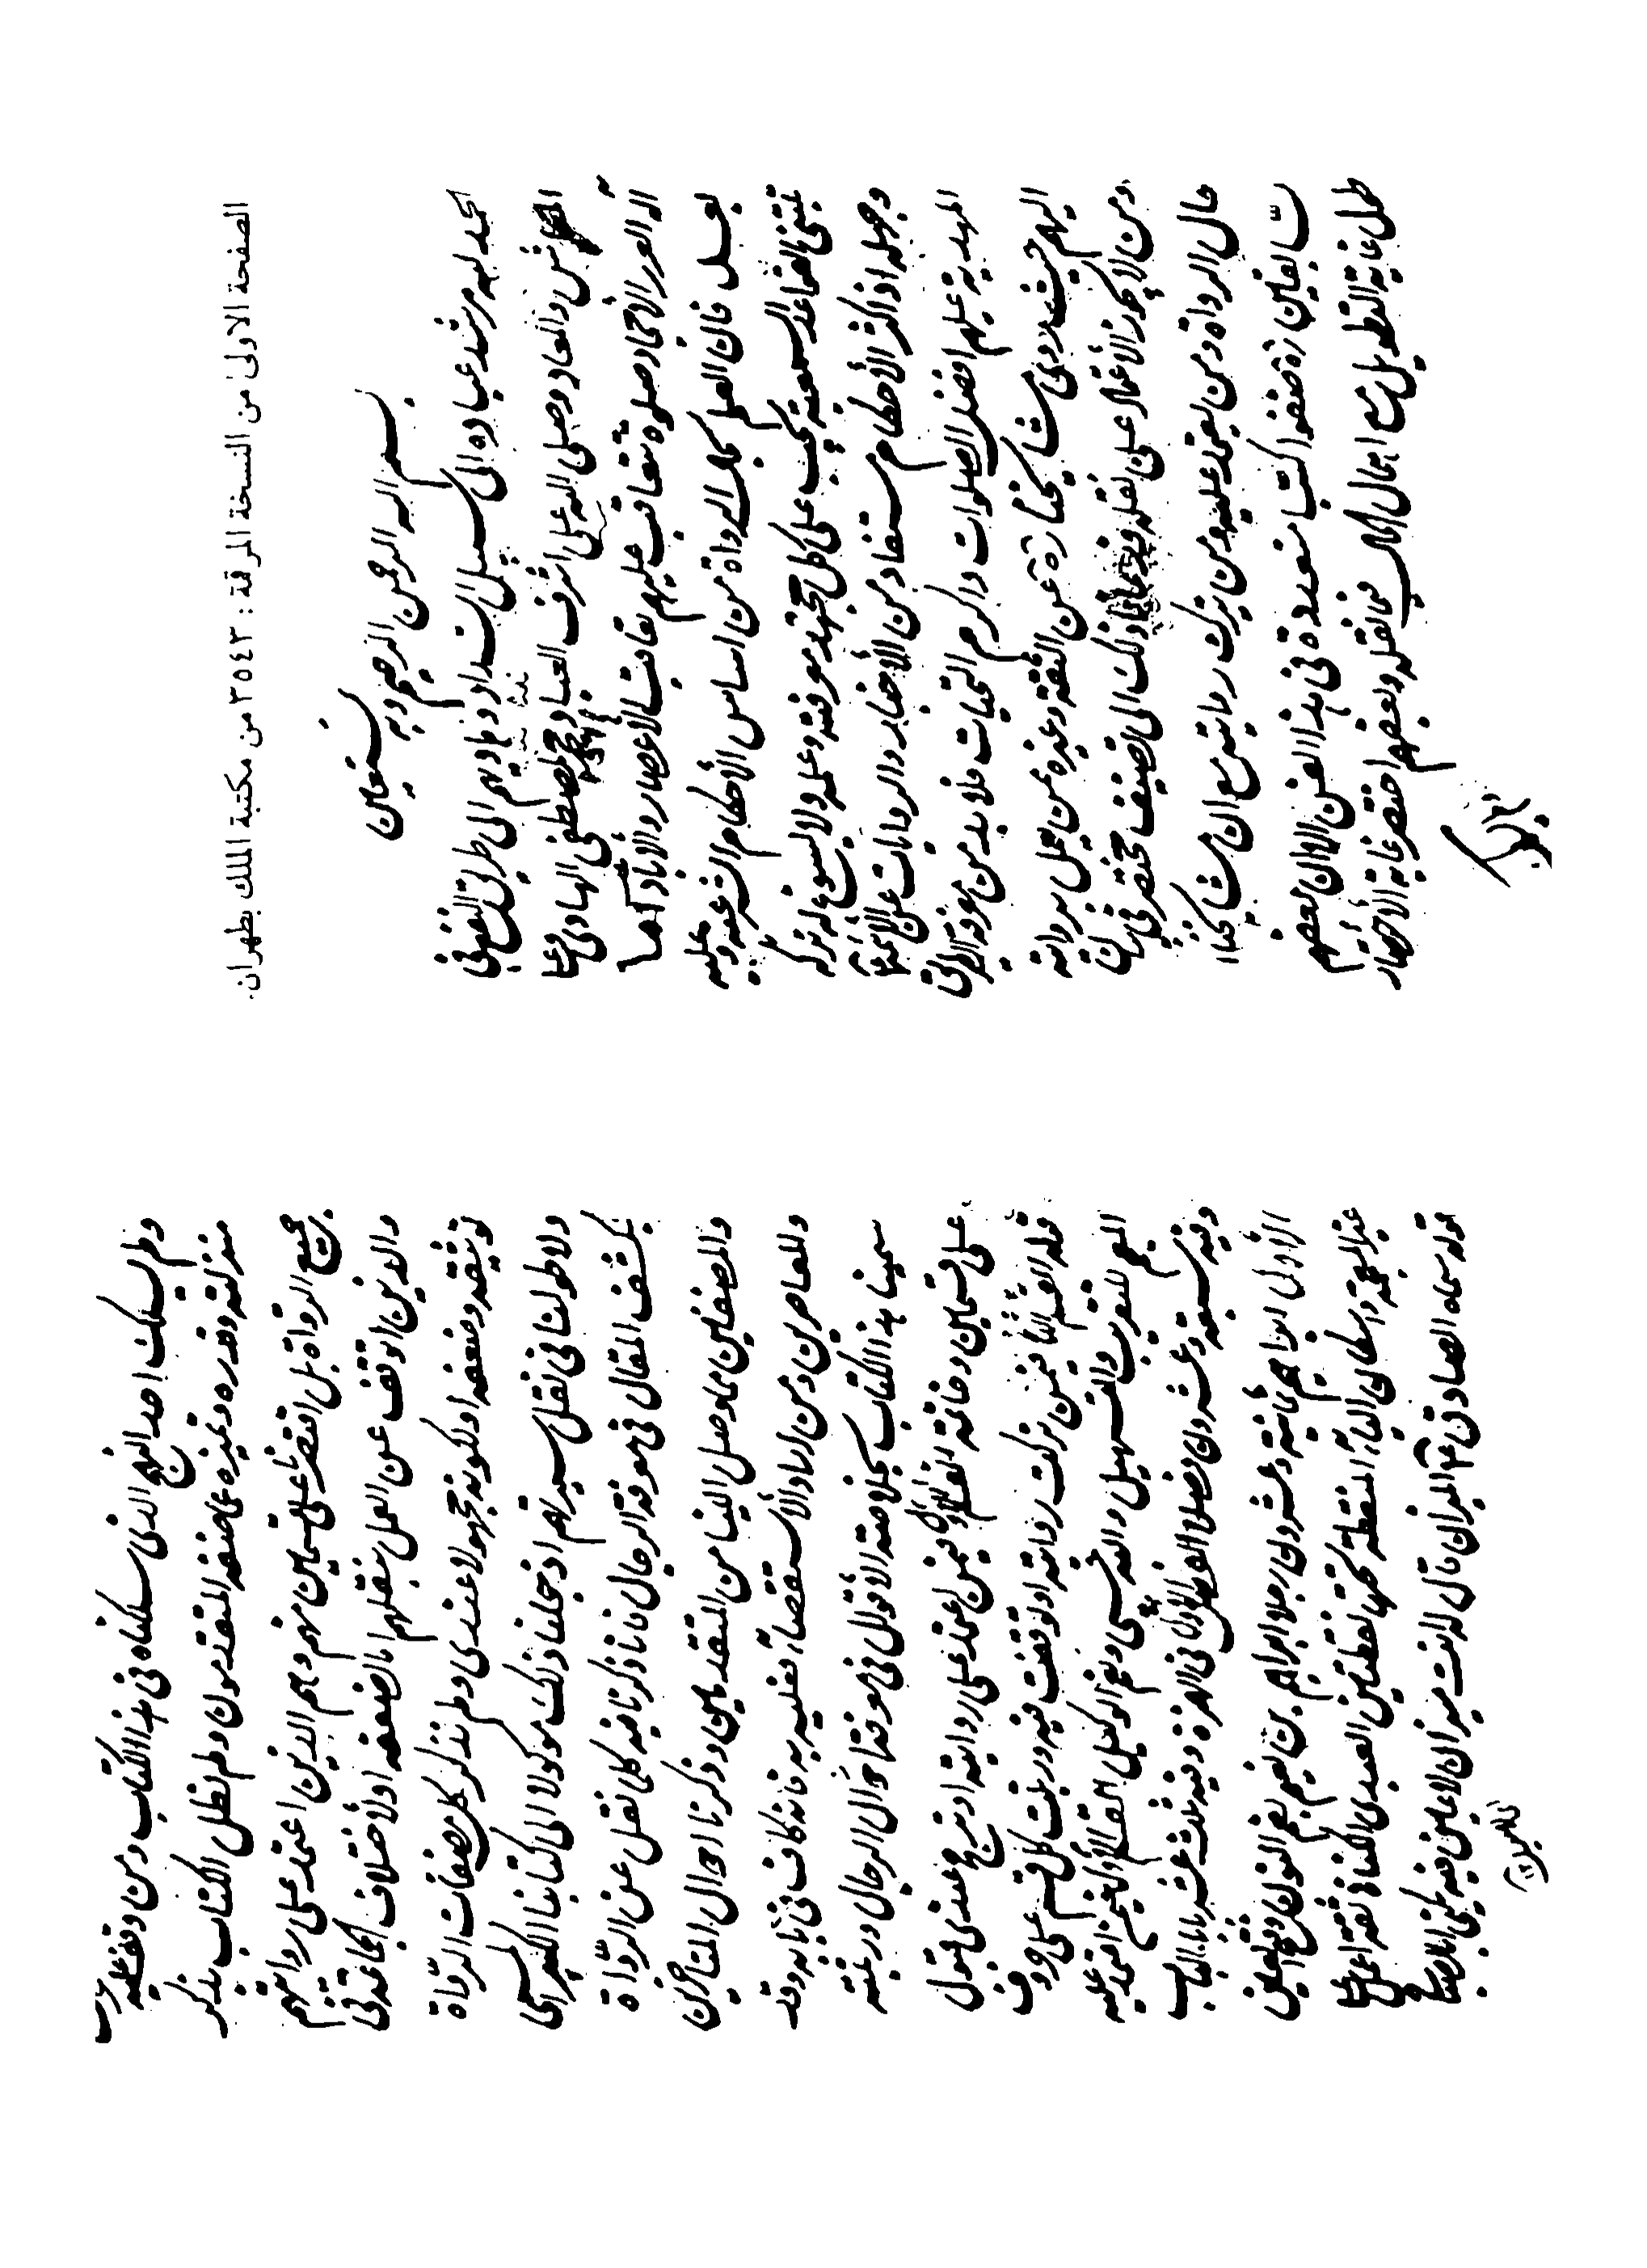 الصفحة الاولىٰ من النسخة المرقمة : ٣٥٤٣ من مكتبة الملك بطهران.
بسم الله الرحمن الرحيم وبه نستعين
الحمد لله مرشد عباده الى سبيل السداد وهاديهم الى طريق النفع في
المعاش والمعاد وصلى الله على اشرف العباد محمد المصطفى الهادي وعلى
اله الغرر الأمجاد صلوة تتعاقب عليهم تعاقب الأعصار والأباد اما
بعد فان العلم بحال الرواة من اساس الأحكام الشرعية وعليه
تبتنى القواعد السمعية يجب على كل مجتهد معرفته وعلمه ولا يسوغ له تركه
وجهله اذ اكثر الأحكام مستفاد من الأخبار والروايات عن الأئمة
المهدية عليهم افضل الصلوات واكرم التحيات فلا بد من معرفة الطرق
اليهم حيث روى مشايخنا ره عن الثقة وغيره ومن يعمل بروايته
ومن لا يجوز الأعتماد على نقله فدعانا ذلك الى تصنيف مختصر في بيان
حال الرواة ومن يعتمد عليه ومن يترك روايته مع ان مشايخنا
السابقين ره صنفوا كتبا متعددة في هذا الفن الا ان بعضهم
طول غاية التطويل مع اجمال الحال فيما نقله وبعضهم اختصر غاية الأختصار
ولم يسلك احد النهج الذي سلكناه في هذا الكتاب ومن وقف عليه عرف
منزلته وقدره وتميزه عما صنفه المتقدمون ولم نطل الكتاب بذكر
جميع الرواة بل اقتصرنا على قسمين منهم وهم الذين اعتمد على روايتهم
والذين اتوقف عن العمل بنقلهم اما لضعفه او لأختلاف الجماعة في
توثيقه وضعفه او لكونه مجهولا عندي ولم نذكر كل مصنفات الرواة
ولا طولنا في نقل سيرتهم اذ جعلنا ذلك موكولا الى كتابنا الكبير المسمى
بكشف المقال في معرفة الرجال فانا ذكرنا فيه كلما نقل عن الرواة
والمصنفين مما وصل الينا من المتقدمين وذكرنا احوال المتأخرين
والمعاصرين ومن اراد الأستقصاء فعليه به فانه كاف في بابه وقد
سمينا هذا الكتاب بخلاصة الأقوال في معرفة احوال الرجال ورتبته
على قسمين وخاتمة القسم الأول فيمن اعتمد على روايته او ترجح عندي قبول
قوله القسم الثاني فيمن تركت روايته او توقفت فيه ورتبت كل قسم على حروف
المعجم للتقريب والتسهيل والله حسبي ونعم الوكيل القسم الأول فيمن اعتمد عليه
وفيه سبعة وعشرون فصلا الفصل الأول في الهمزة وفيه ثلث عشر بابا الباب
الأول ابراهيم ثمانية وعشرون رجلا ابراهيم بن نعيم بضم النون وفتح العين
غير المعجمة واسكان الياء المنقطة تحتها نقطتين العبدي الكناني ثقة اعمل على
قوله سماه الصادق ع الميزان قال له انت ميزان لا عين فيه يكنى ابا الصباح